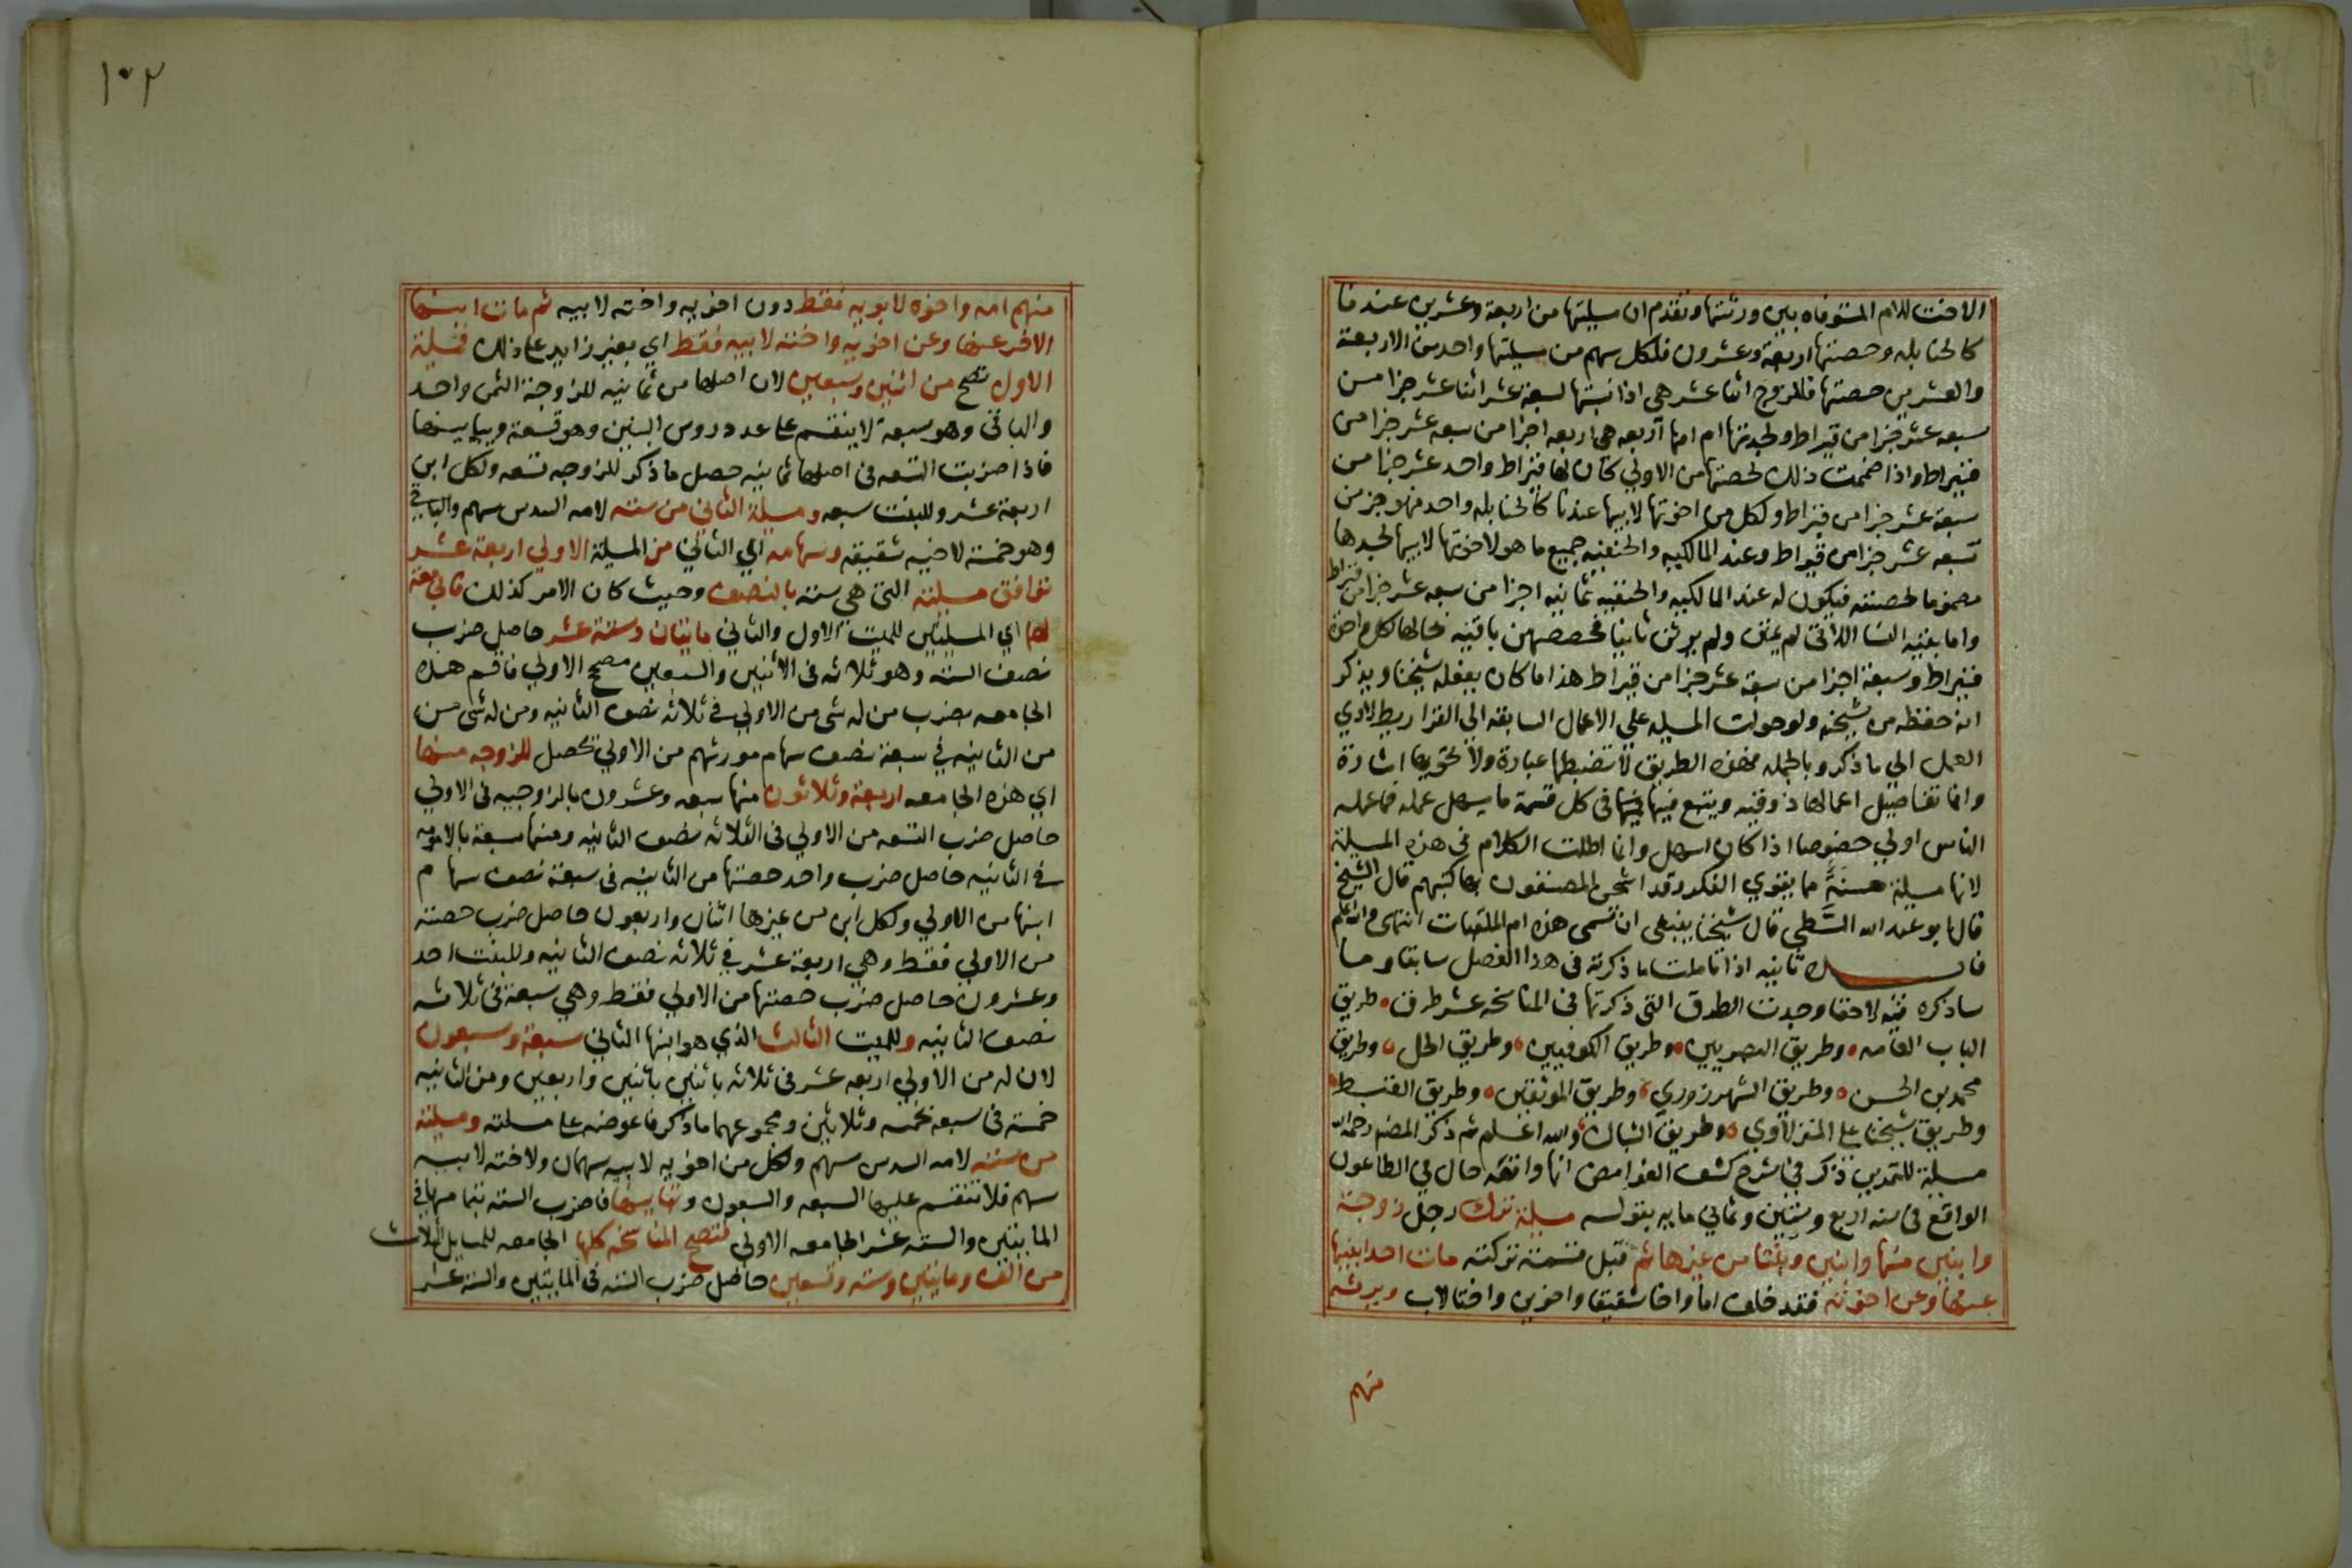 الاخت للام المتوفاه بين ورثتها وتقدم ان مسيلتها من اربعة وعشرين عندنا
كالحنابله وحصتها اربعة وعشرون فلكل سهم من مسيلتها واحد من الاربعة
والعشرين حصتها فللزوج اثنا عشر هي اذا نسبتها لسبعة عشر اثنا عشر جزا من
سبعه عشر جزا من قيراط ولجدتها ام امها اربعه هي اربعه اجزا من سبعه عشر جزا من
قيراط واذا ضممت ذلك لحصتها من الاولي كان لها قيراط واحد عشر جزا من
سبعة عشر جزا من قيراط ولكل من اخوتها لابيها عندنا كالحنابله واحد منهو جز من
سبعه عشر جزا من قيراط وعند المالكيه والحنفيه جميع ما هو لاخوتها لابيها لجدها
مضموما لحصته فيكون له عند المالكيه والحنفيه ثمانيه اجزا من سبعه عشر جزا من قيراط
واما بقيه النسا اللاتي لم يمتن ولم يرثن ثانيا فحصصهن باقيه بحالها لكل واحدة
قيراط وسبعة اجزا من سبعة عشر جزا من قيراط هذا ما كان يفعله شيخنا ويذكر
انه حفظه من شيخه ولو حولت المسيله علي الاعمال السابقه الي القراريط لادي
العمل الي ما ذكر وبالجمله فهذه الطريق لا تضبطها عبارة ولا تحويها اشارة
وانما تفاصيل اعمالها ذوقيه ويتبع فيها في كل قسمة ما يسهل عمله فما عمله
الناس اولي خصوصا اذا كان اسهل وانما اطلت الكلام في هذه المسيلة
لانها مسيلة حسنة مما يقوي الفكر وقد اشحن المصنفون بها كتبهم قال الشيخ
قال ابو عبد الله السطي قال شيخنا ينبغي ان تسمي هذه ام الملقبات انتهي والله اعلم
فايـــدة ثانيه اذا تاملت ما ذكرته في هذا الفصل سابقا وما
ساذكره فيه لاحقا وجدت الطرق التي ذكرتها في المناسخه عشر طرق طريق
الباب العامه وطريق البصريين وطريق الكوفيين وطريق الحل وطريق
محمد بن الحسن وطريق الشهرزوري وطريق الموثقين وطريق القبط
وطريق شيخنا علي المنزلاوي وطريق الشباك والله اعلم ثم ذكر المصنف رحمه الله
مسيلة للتمرين ذكر في شرح كشف الغوامض انها واقعه حال في الطاعون
الواقع في سنه اربع وستين وثماني مايه بقوله مسيلة ترك رجل زوجة
وابنين منها وابنين وبنتا من غيرها ثم قبل قسمة تركته مات احد ابنيها
عنها وعن اخوته فقد خلف اما واخا شقيقا واخوين واختا لاب ويرثه
منهم
١٠٢
منهم امه واخوه لابويه فقط دون اخويه واخته لابيه ثم مات ابنها
الاخر عنها وعن اخويه واخته لابيه فقط اي بغير زايد علي ذلك فمسيلة
الاول تصح من اثنين وسبعين لان اصلها من ثمانيه للزوجة الثمن واحد
والباقي وهو سبعة لا ينقسم علي عدد روس البنين وهو تسعة ويباينها
فاذا ضربت التسعه في اصلها ثمانيه حصل ما ذكر للزوجه تسعه ولكل ابن
اربعة عشر وللبنت سبعه ومسيلة الثاني من سته لامه السدس سهم والباقي
وهو خمسة لاخيه شقيقه وسهامه اي الثاني من المسيلة الاولي اربعة عشر
توافق مسيلته التي هي سته بالنصف وحيث كان الامر كذلك فالجامعة
لهما اي المسيلتين للميت الاول والثاني مايتان وستة عشر حاصل ضرب
نصف الستة وهو ثلاثه في الاثنين والسبعين مصحح الاولي فاقسم هذه
الجامعه بضرب من له شي من الاولي في ثلاثه نصف الثانيه ومن له شي من
من الثانيه في سبعة نصف سهام مورثهم من الاولي يحصل للزوجه منها
اي هذه الجامعه اربعة وثلاثون منها سبعه وعشرون بالزوجيه في الاولي
حاصل ضرب التسعه من الاولي في الثلاثه نصف الثانيه ومنها سبعة بالامومه
في الثانيه حاصل ضرب واحد حصتها من الثانيه في سبعة نصف سهام
ابنها من الاولي ولكل ابن من غيرها اثنان واربعون حاصل ضرب حصته
من الاولي فقط وهي اربعة عشر في ثلاثه نصف الثانيه وللبنت احد
وعشرون حاصل ضرب حصتها من الاولي فقط وهي سبعة في ثلاثه
نصف الثانيه وللميت الثالث الذي هو ابنها الثاني سبعة وسبعون
لان له من الاولي اربعه عشر في ثلاثه باثنين باثنين واربعين ومن الثانيه
خمسة في سبعه بخمسه وثلاثين ومجموعهما ما ذكر فاعرضه علي مسلته ومسيلته
من سته لامه السدس سهم ولكل من اخويه لابيه سهمان ولاخته لابيه
سهم فلا تنقسم عليها السبعه والسبعون وتباينها فاضرب الستة بتمامها في
المايتين والستة عشر الجامعه الاولي فتصح المناسخه كلها الجامعه للمسايل الثلاث
من الف ومايتين وستة وتسعين حاصل ضرب الستة في المايتين والستة عشر